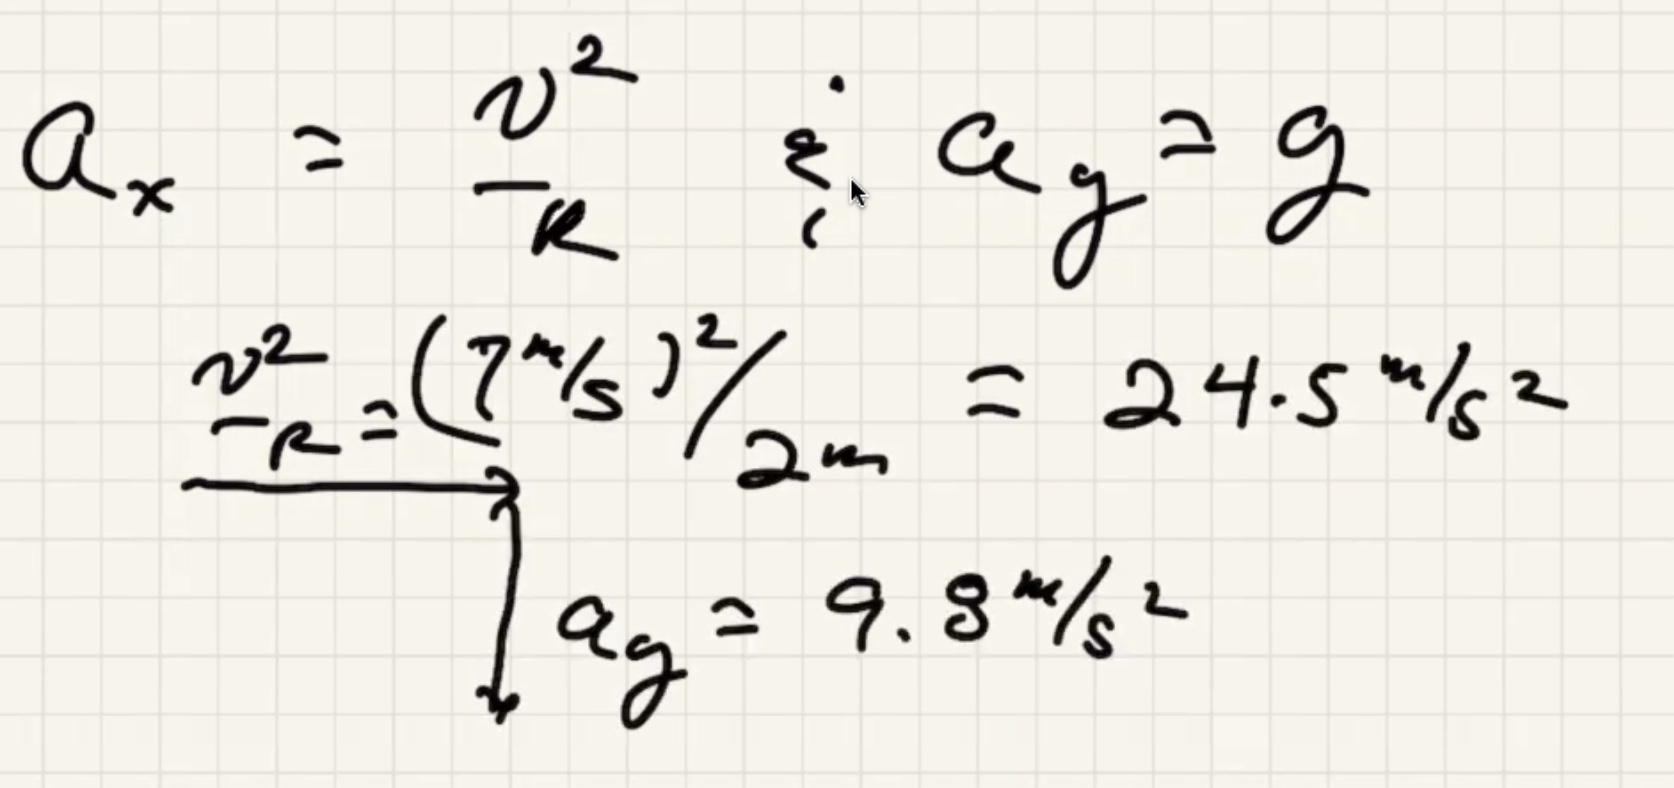 aₓ = v²/R & a_y = g
v²/R = (7 m/s)²/2m = 24.5 m/s²
a_y = 9.8 m/s²